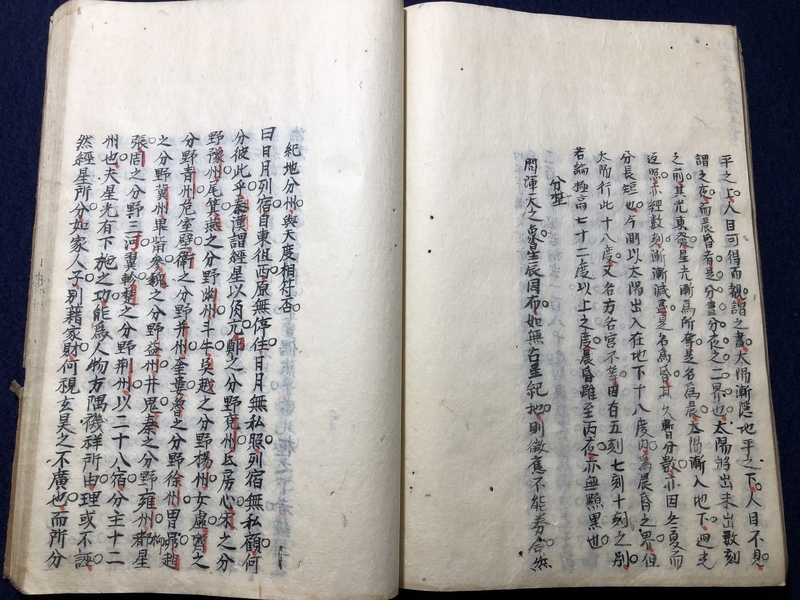 平之上人目可得而覩謂之晝太陽漸隱地平之下人目不見
謂之夜而晨昏者是分晝分夜之二界也太陽將出未出數刻
之前其光東發星光漸爲所奪是名爲晨太陽漸入地下迴光
返照亦經數刻漸漸減盡是名爲昏其久暫分數亦因冬夏而
分長短也今測以太陽出入在地下十八度內爲晨昏之界但
太陽行此十八度又各方各宮不等因有五刻七刻十刻之別
若論極高七十二度以上之度晨昏雖至丙夜亦無顯黑也
分野
問渾天之象星辰因布如無占星紀地則徵應不能券合然
紀地分州與天度相符否
曰日月列宿自東徂西原無停住日月無私照列宿無私顧何
分彼此乎秦漢謂經星以角亢鄭之分野兗州氐房心宋之分
野豫州尾箕燕之分野幽州斗牛吳越之分野楊州女虛齊之
分野青州危室壁衛之分野并州奎婁魯之分野徐州胃昴趙
之分野冀州畢觜參魏之分野益州井鬼秦之分野雍州柳星
張周之分野三河翼軫楚之分野荆州以二十八宿分主十二
州也夫星光有下施之功能爲人物方隅禨祥所由理或不誣
然經星所分如家人子別藉家財何視玄昊之不廣也而所分